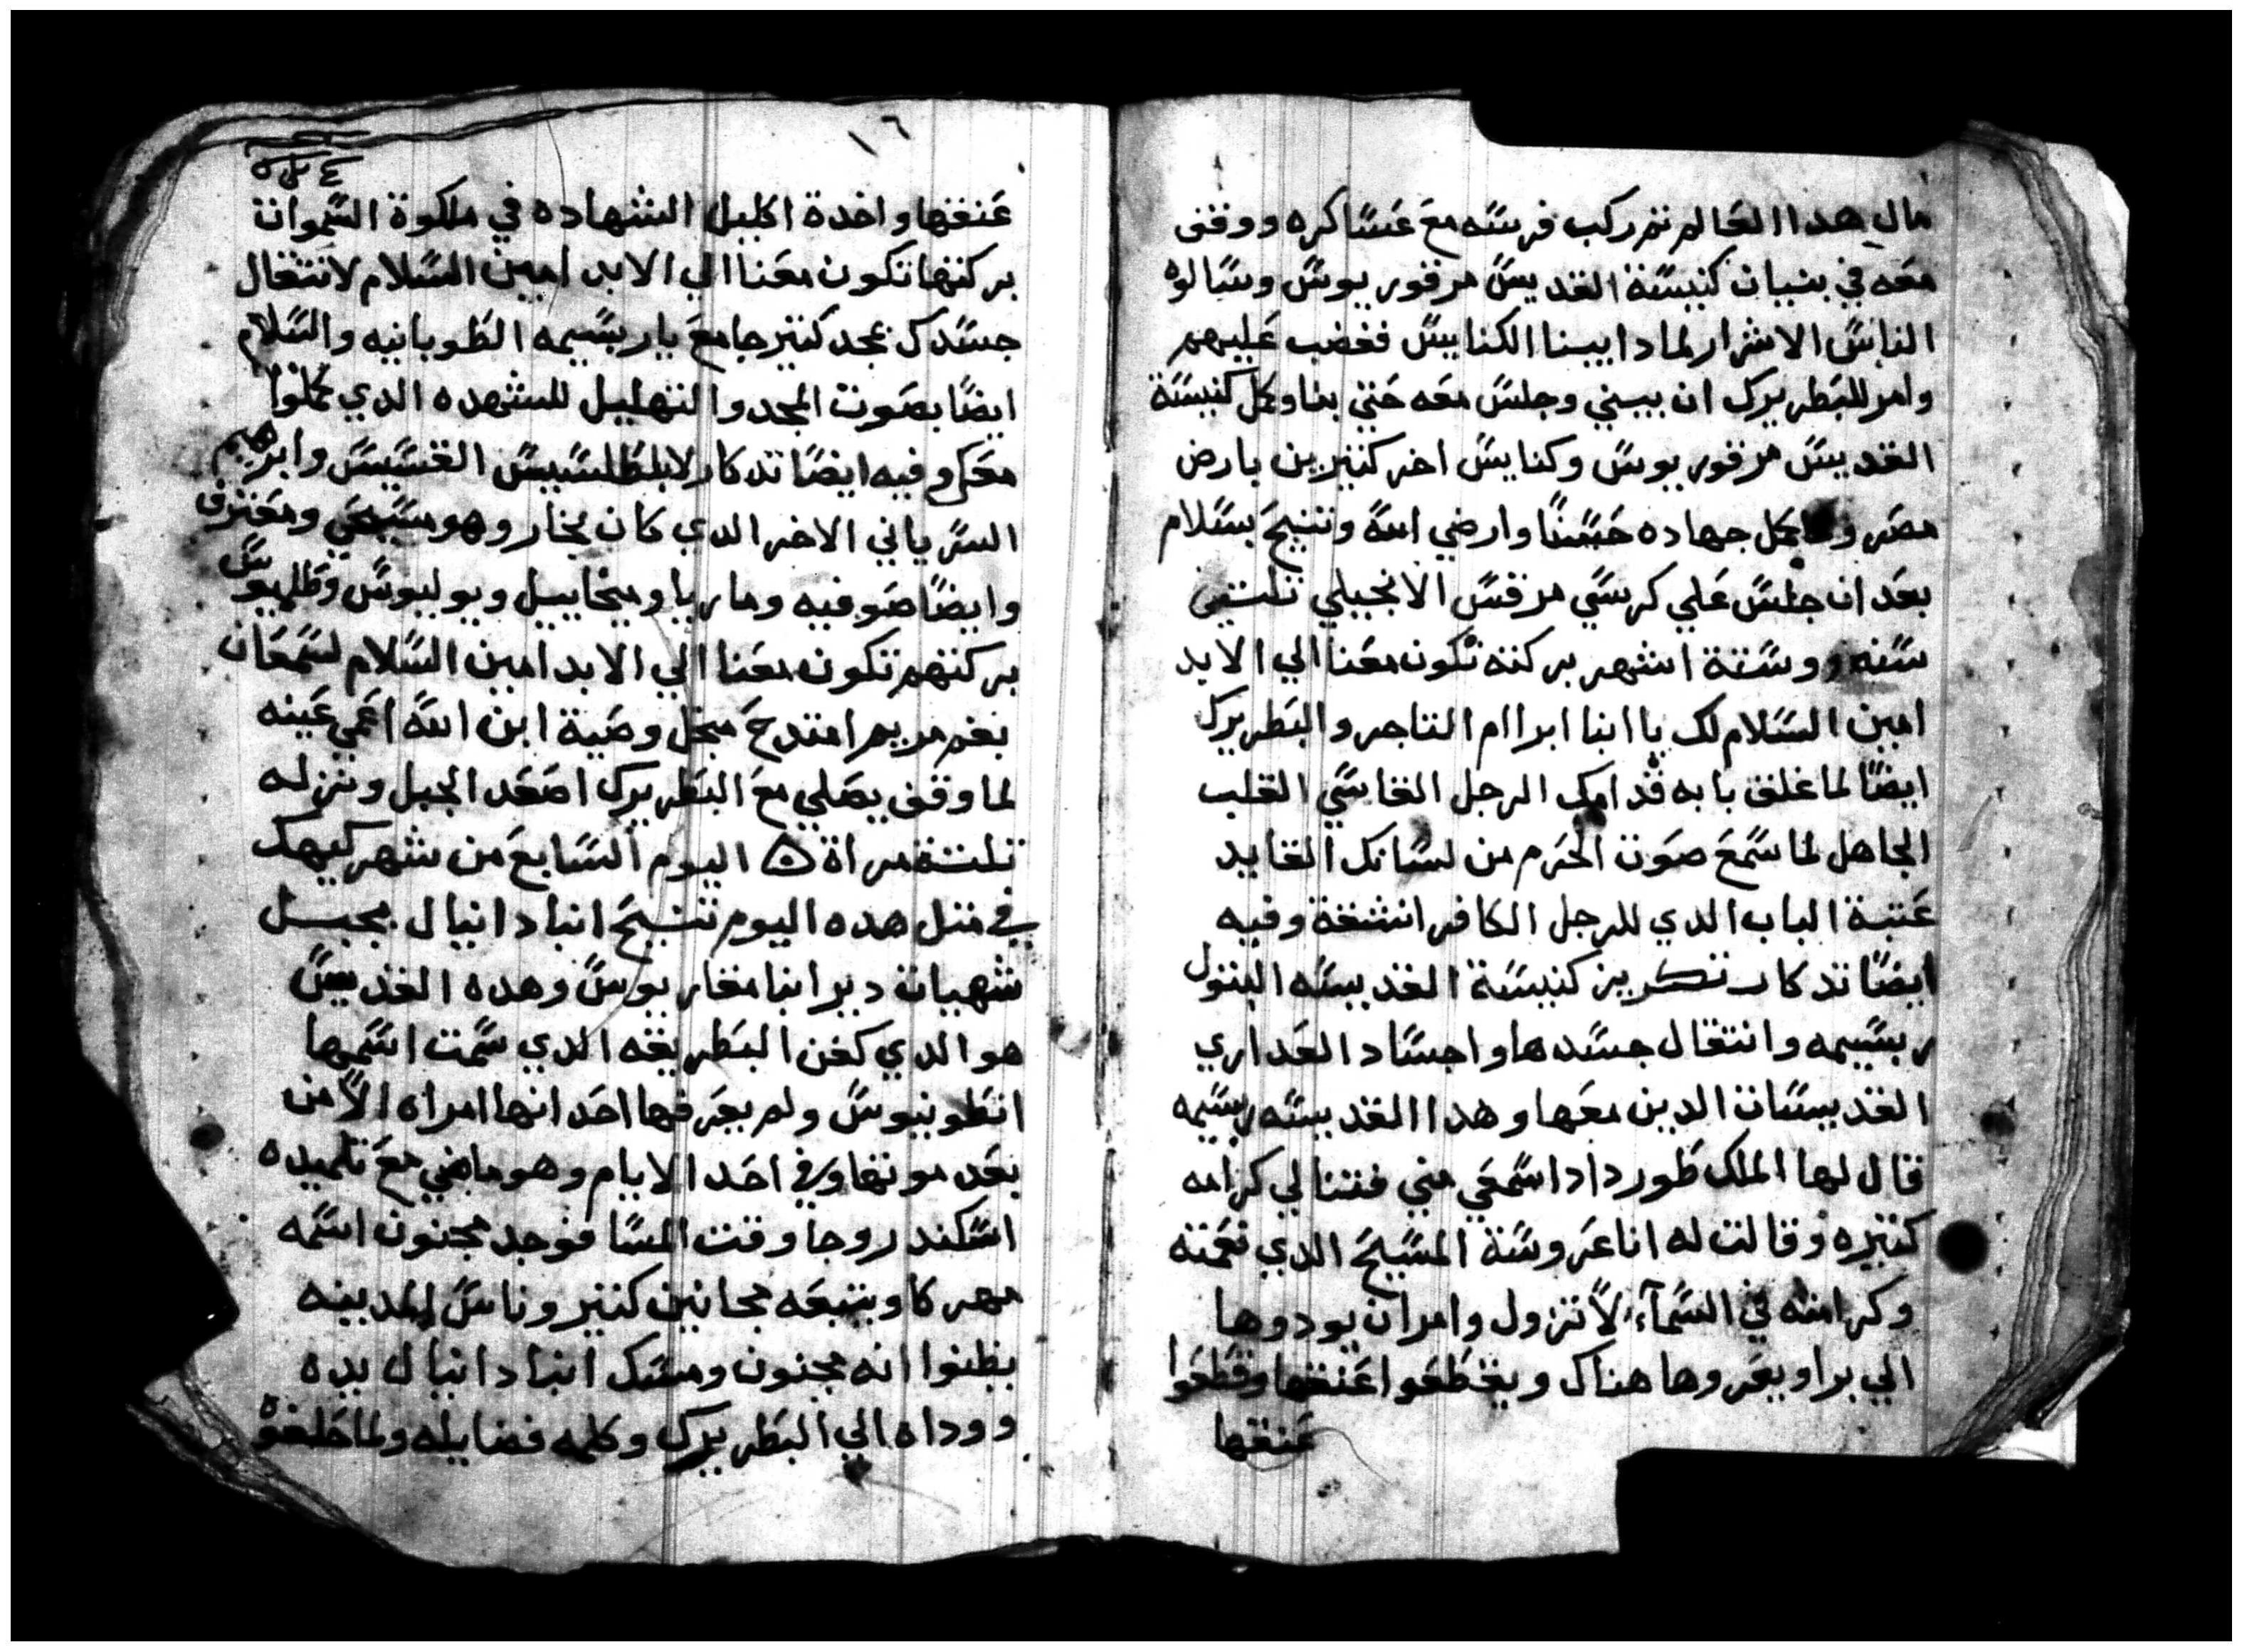 مال هدا العالم ثم ركب فرسه مع عساكره ووقف
معه في بنيان كنيسة القديس مرقوريوس وسالوه
الناس الاشرار لمادا يبنا الكنايس فغضب عليهم
وامر للبطريرك ان يبني وجلس معه حتي بنا وكمل كنيسة
القديس مرقوريوس وكنايس اخر كتيرين بارض
مصر وكمل جهاده حسنًا وارضي الله وتنيح بسلام
بعد ان جلس علي كرسي مرقس الانجيلي تلتين
سنه وستة اشهر بركته تكون معنا الي الابد
امين السلام لك يا انبا ابراام التاجر والبطريرك
ايضًا لما غلق بابه قدامك الرجل القاسي القلب
الجاهل لما سمع صوت الحرم من لسانك القايد
عتبة الباب الدي للرجل الكافر انشقة وفيه
ايضًا تدكار تكريز كنيسة القديسه البتول
ربسيمه وانتقال جسدها واجساد العداري
القديسات الدين معها وهدا القديسه ربسيمه
قال لها الملك طورداد اسمعي مني فتنالي كرامه
كتيره وقالت له انا عروسة المسيح الدي نعمته
وكرامته في السمآء لا تزول وامر ان يودوها
الي برا ويعروها هناك ويقطعوا عنقها وقطعوا
عنقها
١٦
عنقها واخدة اكليل الشهاده في ملكوة السموات
بركتها تكون معنا الي الابد امين السلام لانتقال
جسدك بمجد كتير جامع يا ربسيمه الطوبانيه والسلام
ايضًا بصوت المجد والتهليل للشهده الدي كملوا
معكم وفيه ايضًا تدكار لابلطلسيس القسيس وابرهيم
السرياني الاخر الدي كان بخار وهو مسيحي ومعترف
وايضًا صوفيه وماريا وميخاييل وبولبوس وطلميوس
بركتهم تكون معنا الي الابد امين السلام لسمعان
بغم مريم امتدح مبجل وصية ابن الله اعمي عينه
لما وقف يصلي مع البطريرك اصعد الجبل ونزله
تلتة مراة اليوم السابع من شهر كيهك
في متل هده اليوم تنيح انبا دانيال بجبل
شهيات دير انبا مقاريوس وهده القديس
هو الدي كفن البطريقه الدي سمت اسمها
انطونيوس ولم يعرفها احد انها امراه الا من
بعد موتها وفي احد الايام وهو ماضي مع تلميده
اسكندروحا وقت المسا فوجد مجنون اسمه
مهركا ويتبعه مجانين كتير وناس المدينه
يظنوا انه مجنون ومسك انبا دانيال يده
ووداه الي البطريرك وكلمه فضايله ولما حلفوه